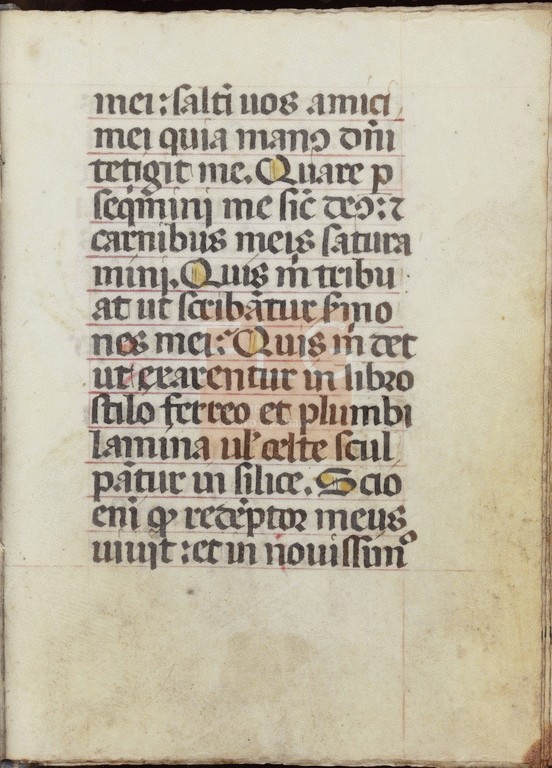 mei: salti̅ uos amici
mei quia manꝯ dn̅i
tetigit me. Quare ꝑ
seq̅mini me sic̅ deꝯ: ⁊
carnibus meis satura
mini. Quis m̅ tribu
at ut scriba̅tur s̅mo
nes mei: Quis m̅ det
ut exarentur in libro
stilo ferreo et plumbi
lamina ul̅ celte scul
pa̅tur in silice. Scio
eni̅ ꝙ rede̅ptor meus
uiuit: et in nouissimᵒ